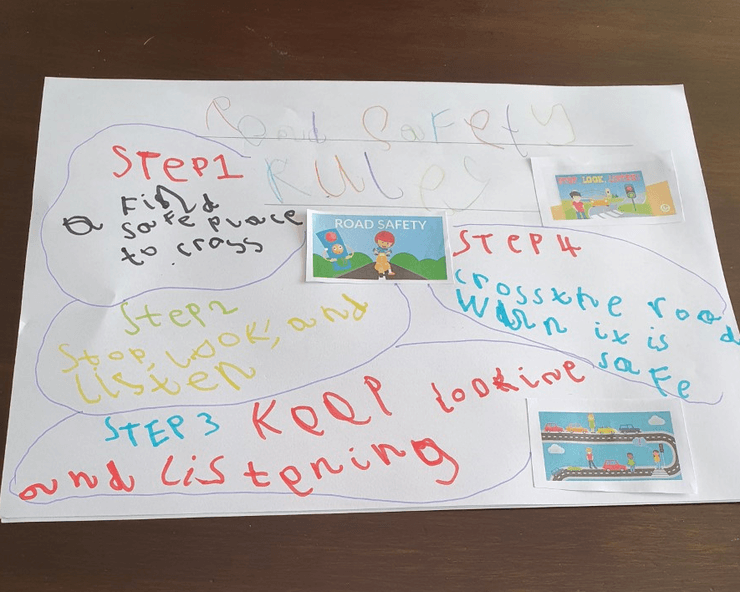 Road Safety
Rules
STEP1
Find
a safe place
to cross
Step2
Stop, Look, and
Listen
STEP3 Keep looking
and Listening
STEP4
crossxthe road
when it is
safe
ROAD SAFETY
STOP, LOOK, LISTEN!